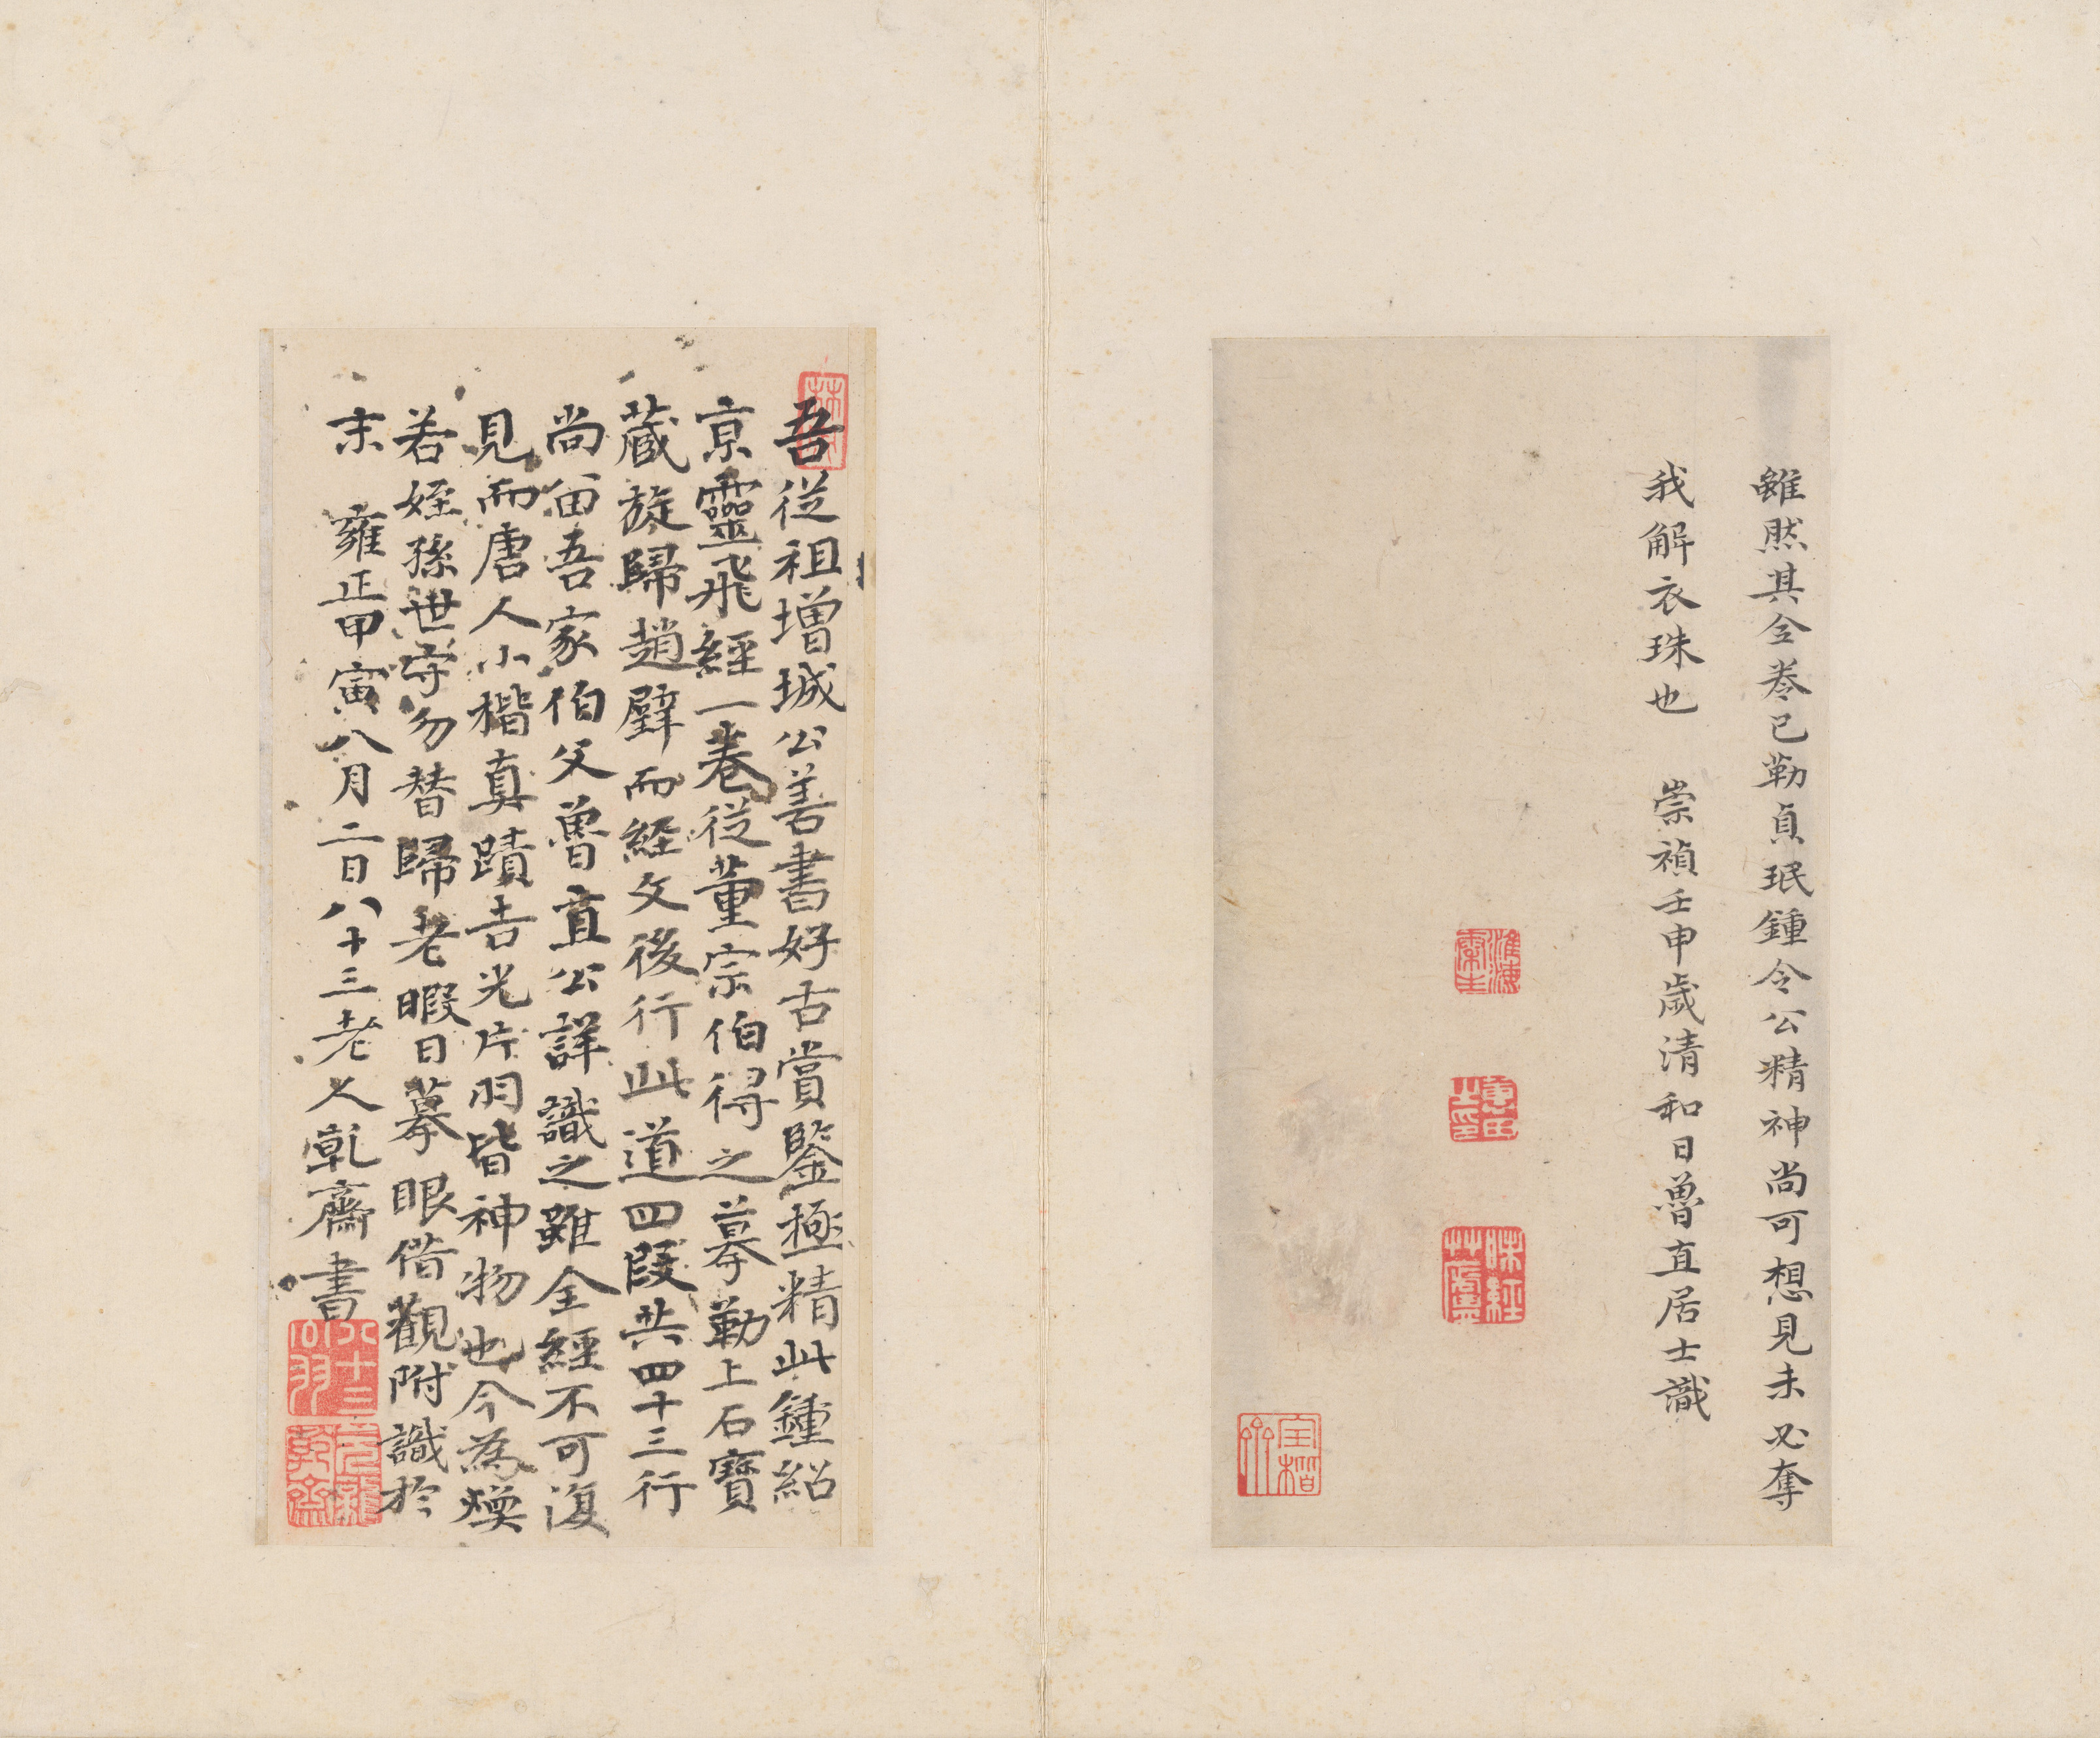 雖然其全卷已勒貞珉鍾令公精神尚可想見未必奪
我解衣珠也 崇禎壬申歲清和日魯直居士識
淮海
味經
吾從祖增城公善書好古賞鑒極精此鍾紹
京靈飛經一卷從董宗伯得之摹勒上石寶
藏旋歸趙璧而經文後行此道四段共四十三行
尚留吾家伯父魯直公詳識之雖全經不可復
見而唐人小楷真蹟吉光片羽皆神物也今為煥
若姪孫世守勿替歸老暇日摹眼借觀附識於
末 雍正甲寅八月二日八十三老人乾齋書
元龍
乾齋